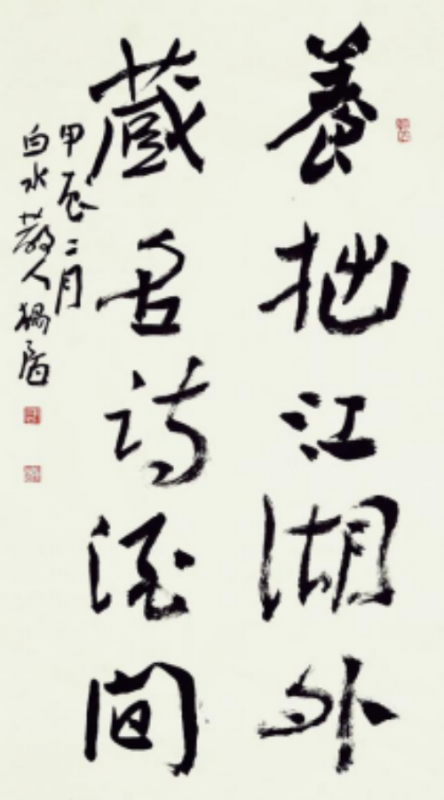 養拙江湖外
藏名詩酒間
甲辰二月
白水散人